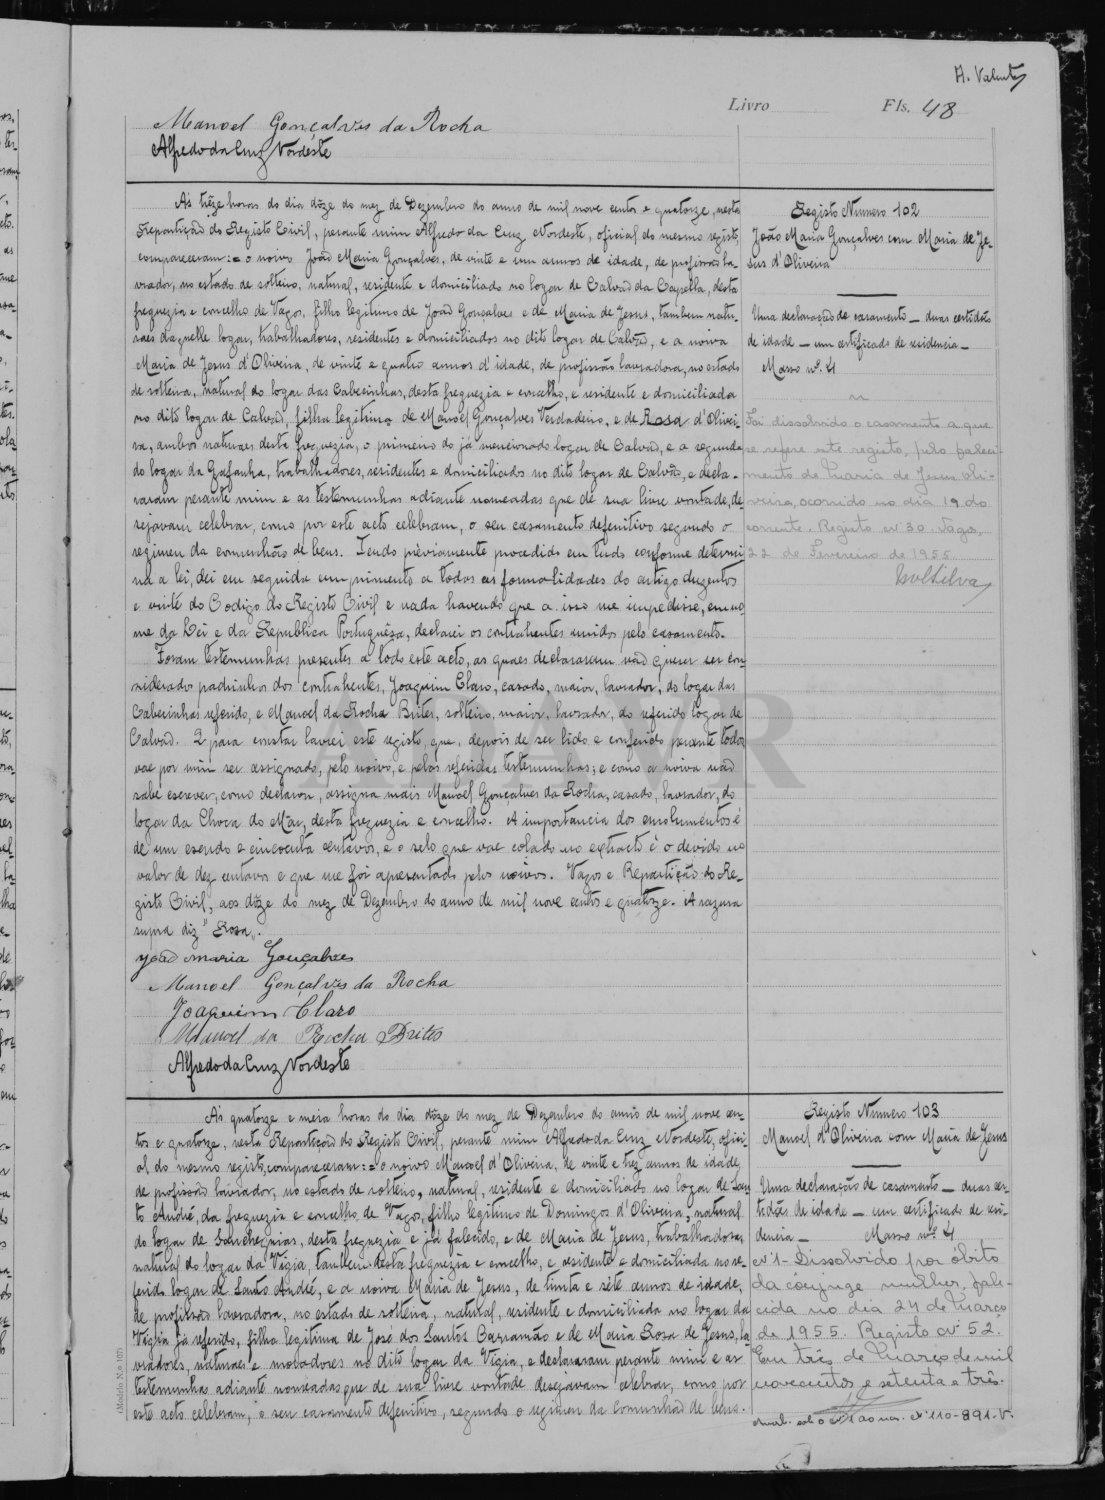 A. Valente
Livro Fls. 48
Manoel Gonçalves da Rocha
Alfredo da Cruz Nordeste
Ás treze horas do dia dôze do mez de Dezembro do anno de mil nove centos e quatorze, nesta
Repartição do Registo Civil, perante mim Alfredo da Cruz Nordeste, oficial do mesmo registo,
compareceram: = o noivo João Maria Gonçalves, de vinte e um annos de idade, de profissão la-
vrador, no estado de solteiro, natural, residente e domiciliado no logar de Calvão da Capella, desta
freguezia e concelho de Vagos, filho legitimo de João Gonçalves e de Maria de Jesus, tambem natu-
raes daquelle logar, trabalhadores, residentes e domiciliados no dito logar de Calvão, e a noiva
Maria de Jesus d'Oliveira, de vinte e quatro annos d'idade, de profissão lavradora, no estado
de solteira, natural do logar das Cabecinhas, desta freguezia e concelho, e residente e domiciliada
no dito logar de Calvão, filha legitima de Manoel Gonçalves Verdadeiro, e de Rosa d'Olivei-
ra, ambos naturaes desta freguezia, o primeiro do já mencionado logar de Calvão, e a segunda
do logar da Gafanha, trabalhadores, residentes e domiciliados no dito logar de Calvão, e decla-
raram perante mim e as testemunhas adiante nomeadas que de sua livre vontade, de-
sejavam celebrar, como por este acto celebram, o seu casamento defenitivo segundo o
regimen da comunhão de bens. Tendo préviamente procedido em tudo conforme determi-
na a lei, dei em seguida cumprimento a todas as formalidades do artigo duzentos
e vinte do Codigo do Registo Civil e nada havendo que a isso me impedisse, em no-
me da Lei e da Republica Portuguêsa, declarei os contrahentes unidos pelo casamento.
Foram testemunhas presentes a todo este acto, as quaes declararam não querer ser con-
siderado padrinhos dos contrahentes, Joaquim Claro, casado, maior, lavrador, do logar das
Cabecinhas referido, e Manoel da Rocha Brites, solteiro, maior, lavrador, do referido logar de
Calvão. E para constar lavrei este registo, que, depois de ser lido e conferido perante todos
vae por mim ser assignado, pelo noivo, e pelas referidas testemunhas; e como a noiva não
sabe escrever, como declarou, assigna mais Manoel Gonçalves da Rocha, casado, lavrador, do
logar da Choca do Mar, desta freguezia e concelho. A importancia dos emolumentos é
de um escudo e cincoenta centavos, e o selo que vae colado no extracto é o devido no
valor de dez centavos e que me foi apresentado pelos noivos. Vagos e Repartição do Re-
gisto Civil, aos dôze do mez de Dezembro do anno de mil nove centos e quatorze. A razura
supra diz "Rosa".
João Maria Gonçalves
Manoel Gonçalves da Rocha
Joaquim Claro
Manuel da Rocha Brites
Alfredo da Cruz Nordeste
Registo Numero 102
João Maria Gonçalves com Maria de Je-
sus d'Oliveira
Uma declaração de casamento — duas certidões
de idade — um certificado de residencia —
Masso nº. 4
Foi dissolvido o casamento a que
se refere este registo, pelo faleci-
mento de Maria de Jesus Oli-
veira, ocorrido no dia 19 do
corrente. Registo nº 30. Vagos,
22 de Fevereiro de 1955.
Ás quatorze e meia horas do dia dôze do mez de Dezembro do anno de mil nove cen-
tos e quatorze, nesta Repartição do Registo Civil, perante mim Alfredo da Cruz Nordeste, ofici-
al do mesmo registo, compareceram: = o noivo Manoel d'Oliveira, de vinte e trez annos de idade,
de profissão lavrador, no estado de solteiro, natural, residente e domiciliado no logar de San-
to André, da freguezia e concelho de Vagos, filho legitimo de Domingos d'Oliveira, natural
do logar de Sanchequias, desta freguezia e já falecido, e de Maria de Jesus, trabalhadora,
natural do logar da Vigia, tambem desta freguezia e concelho, e residente e domiciliada no re-
ferido logar de Santo André, e a noiva Maria de Jesus, de trinta e séte annos de idade,
de profissão lavradora, no estado de solteira, natural, residente e domiciliada no logar da
Vigia já referido, filha legitima de José dos Santos Barramão e de Maria Rosa de Jesus, la-
vradores, naturaes e moradores no dito logar da Vigia, e declararam perante mim e as
testemunhas adiante nomeadas que de sua livre vontade desejavam celebrar, como por
este acto celebram, o seu casamento defenitivo, segundo o regimen da comunhão de bens.
Registo Numero 103
Manoel d'Oliveira com Maria de Jesus
Uma declaração de casamento — duas cer-
tidões de idade — um certificado de resi-
dencia — Masso nº. 4
Nº 1 - Dissolvido por óbito
da cônjuge mulher, fale-
cida no dia 24 de Março
de 1955. Registo nº 52.
Em três de Março de mil
novecentos e setenta e três.
(Modêlo N.o 107)